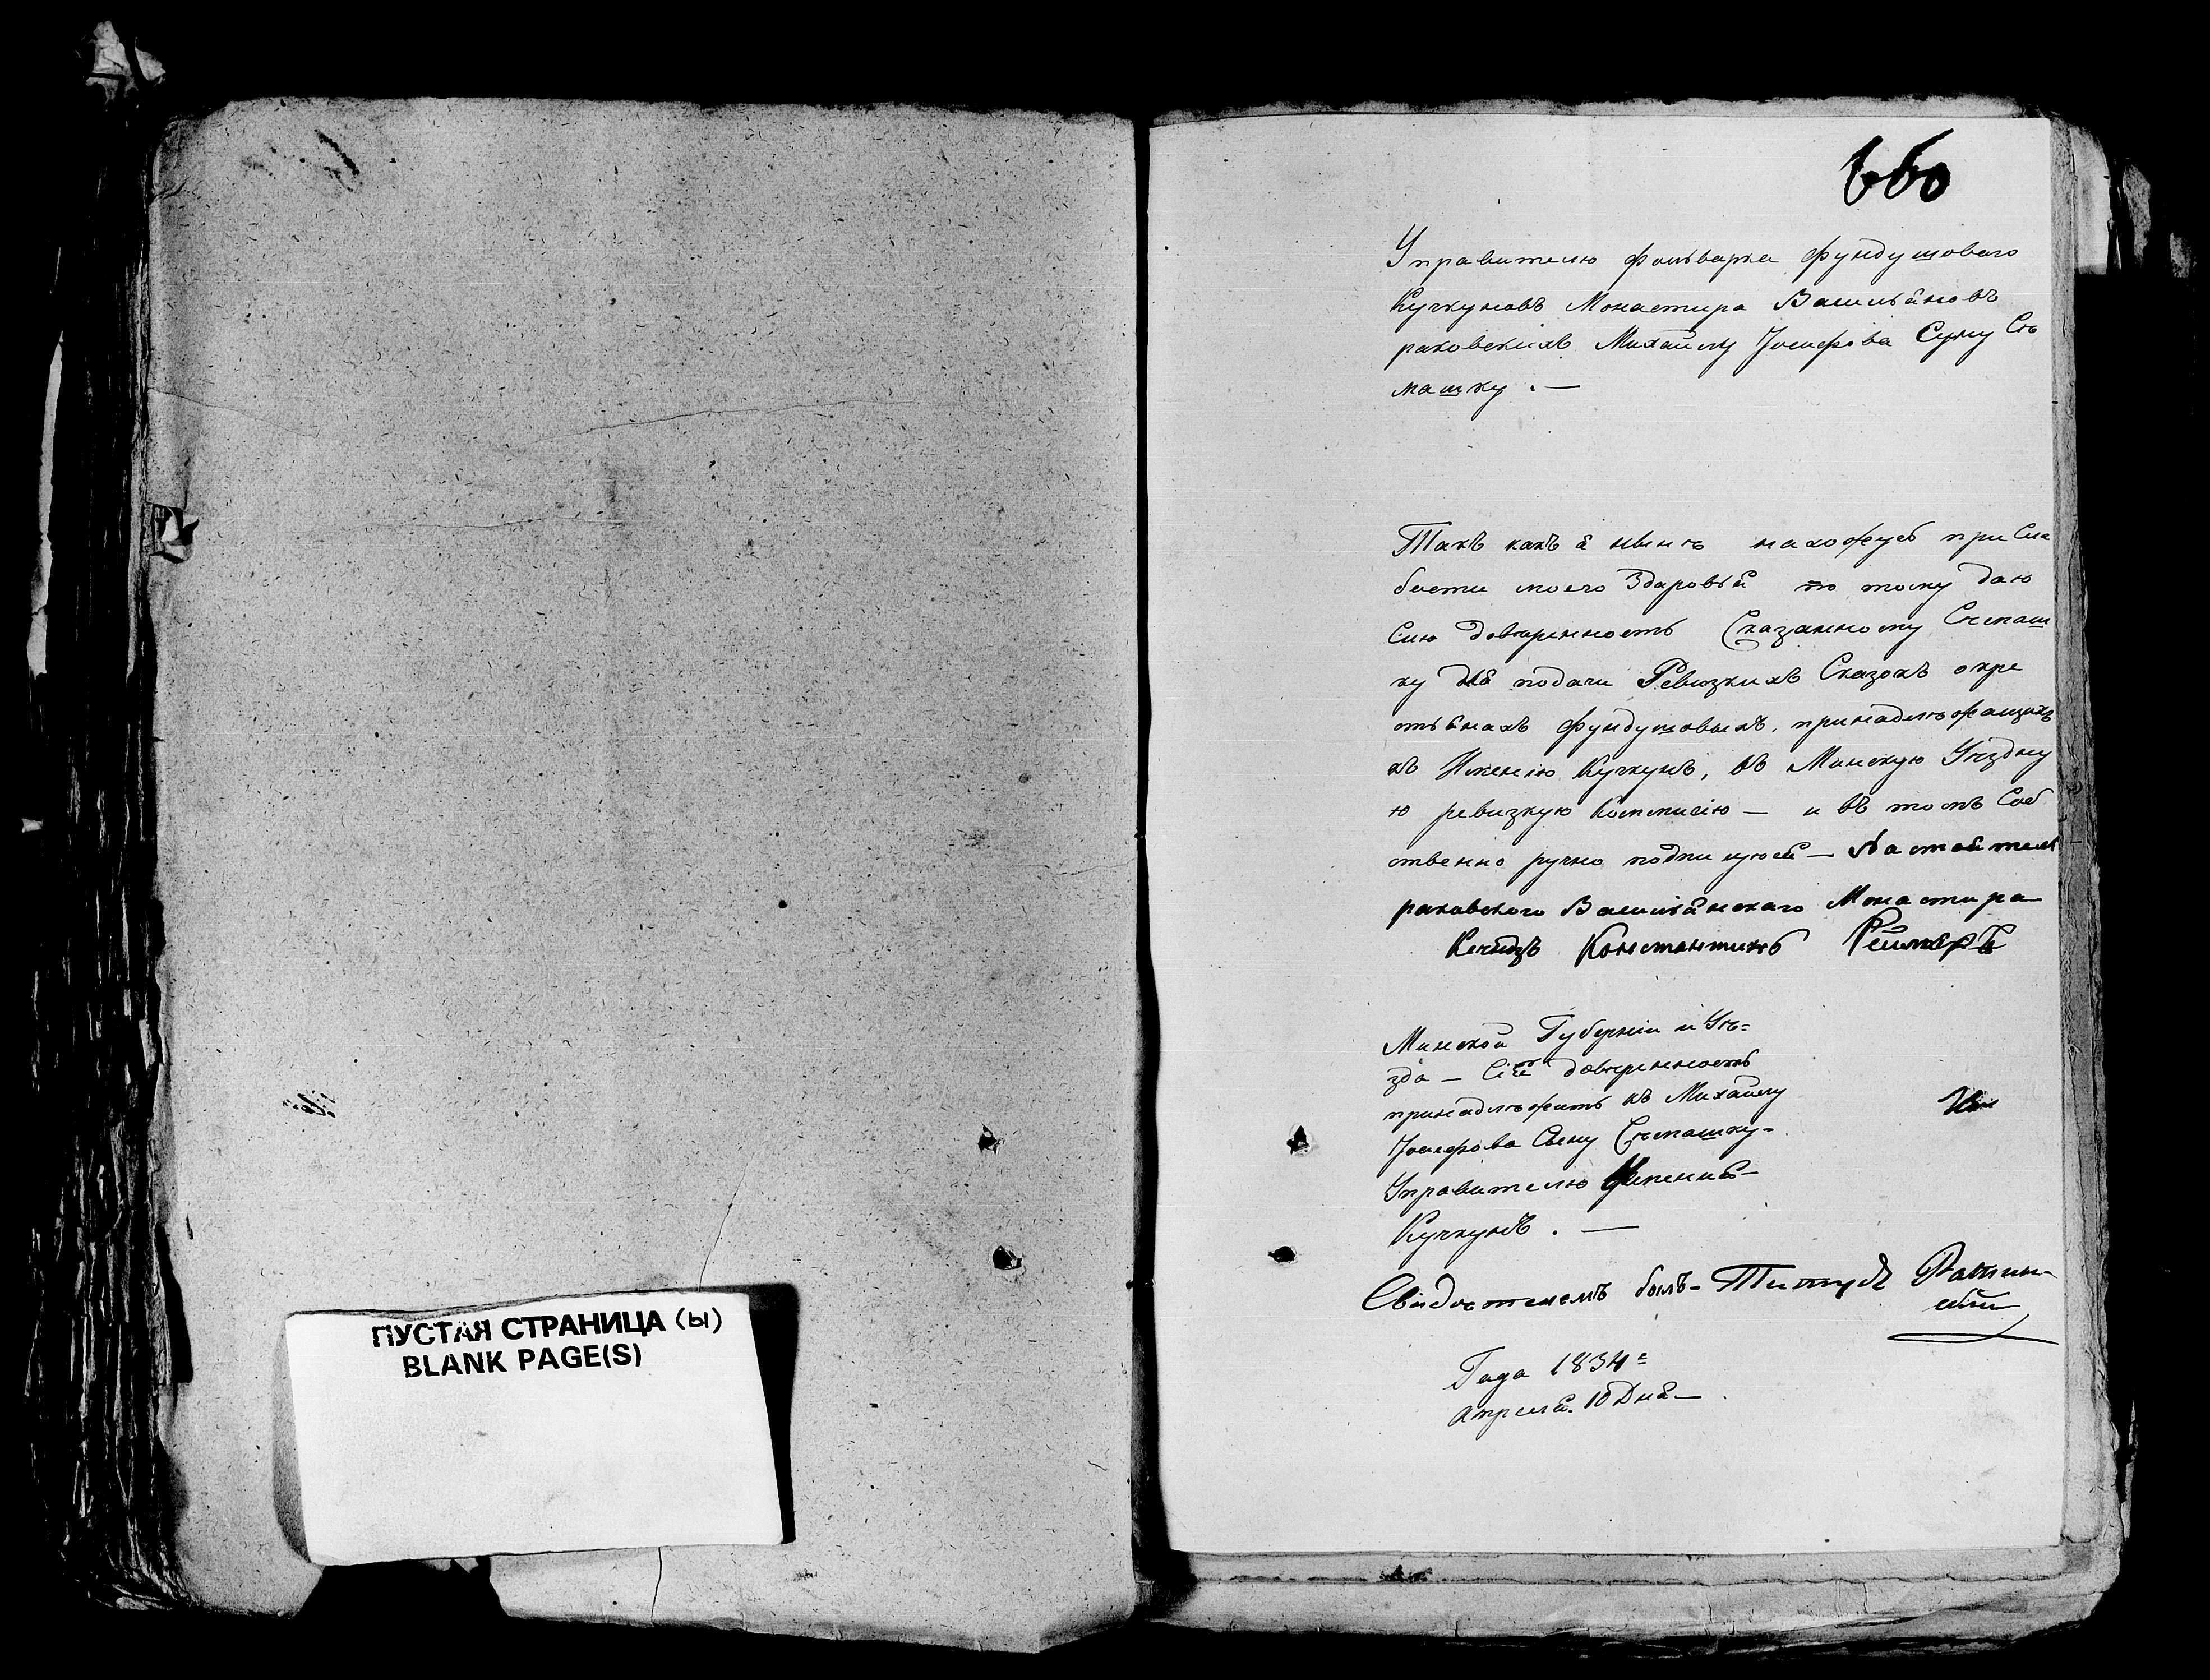 660
Управителю фольварка фундушового
Кучкуновъ Монастира Васильяновъ
раковскихъ Михайлу Іосифова Сыну Съ
машку . —
Такъ какъ я нынѣ нахожусь при Сла
бости моего Здаровья по тому даю
Сию довѣренность Сказанному Съмаш
ку для подачи Ревизкихъ Сказокъ о кре
стьянахъ фундушовыхъ, принадлѣжащихъ
къ Имѣнію Кучкунъ, въ Минскую Уѣздну
ю ревизкую Коммисію — и въ томъ Соб
ственно ручно подписуюсь — Настоятель
раковского Васильянскаго Монастира
Ксіондзъ Константинъ
Минской Губерніи и Уѣ=
зда — Сія довѣренность
принадлѣжитъ къ Михайлу
Іосифова Сыну Съмашку-
Управителю Имения-
Кучкунъ . —
Свидѣтелемъ былъ - Титусъ
Года 1834=
Апреля. 10 Дня —
ПУСТАЯ СТРАНИЦА (ы)
BLANK PAGE(S)